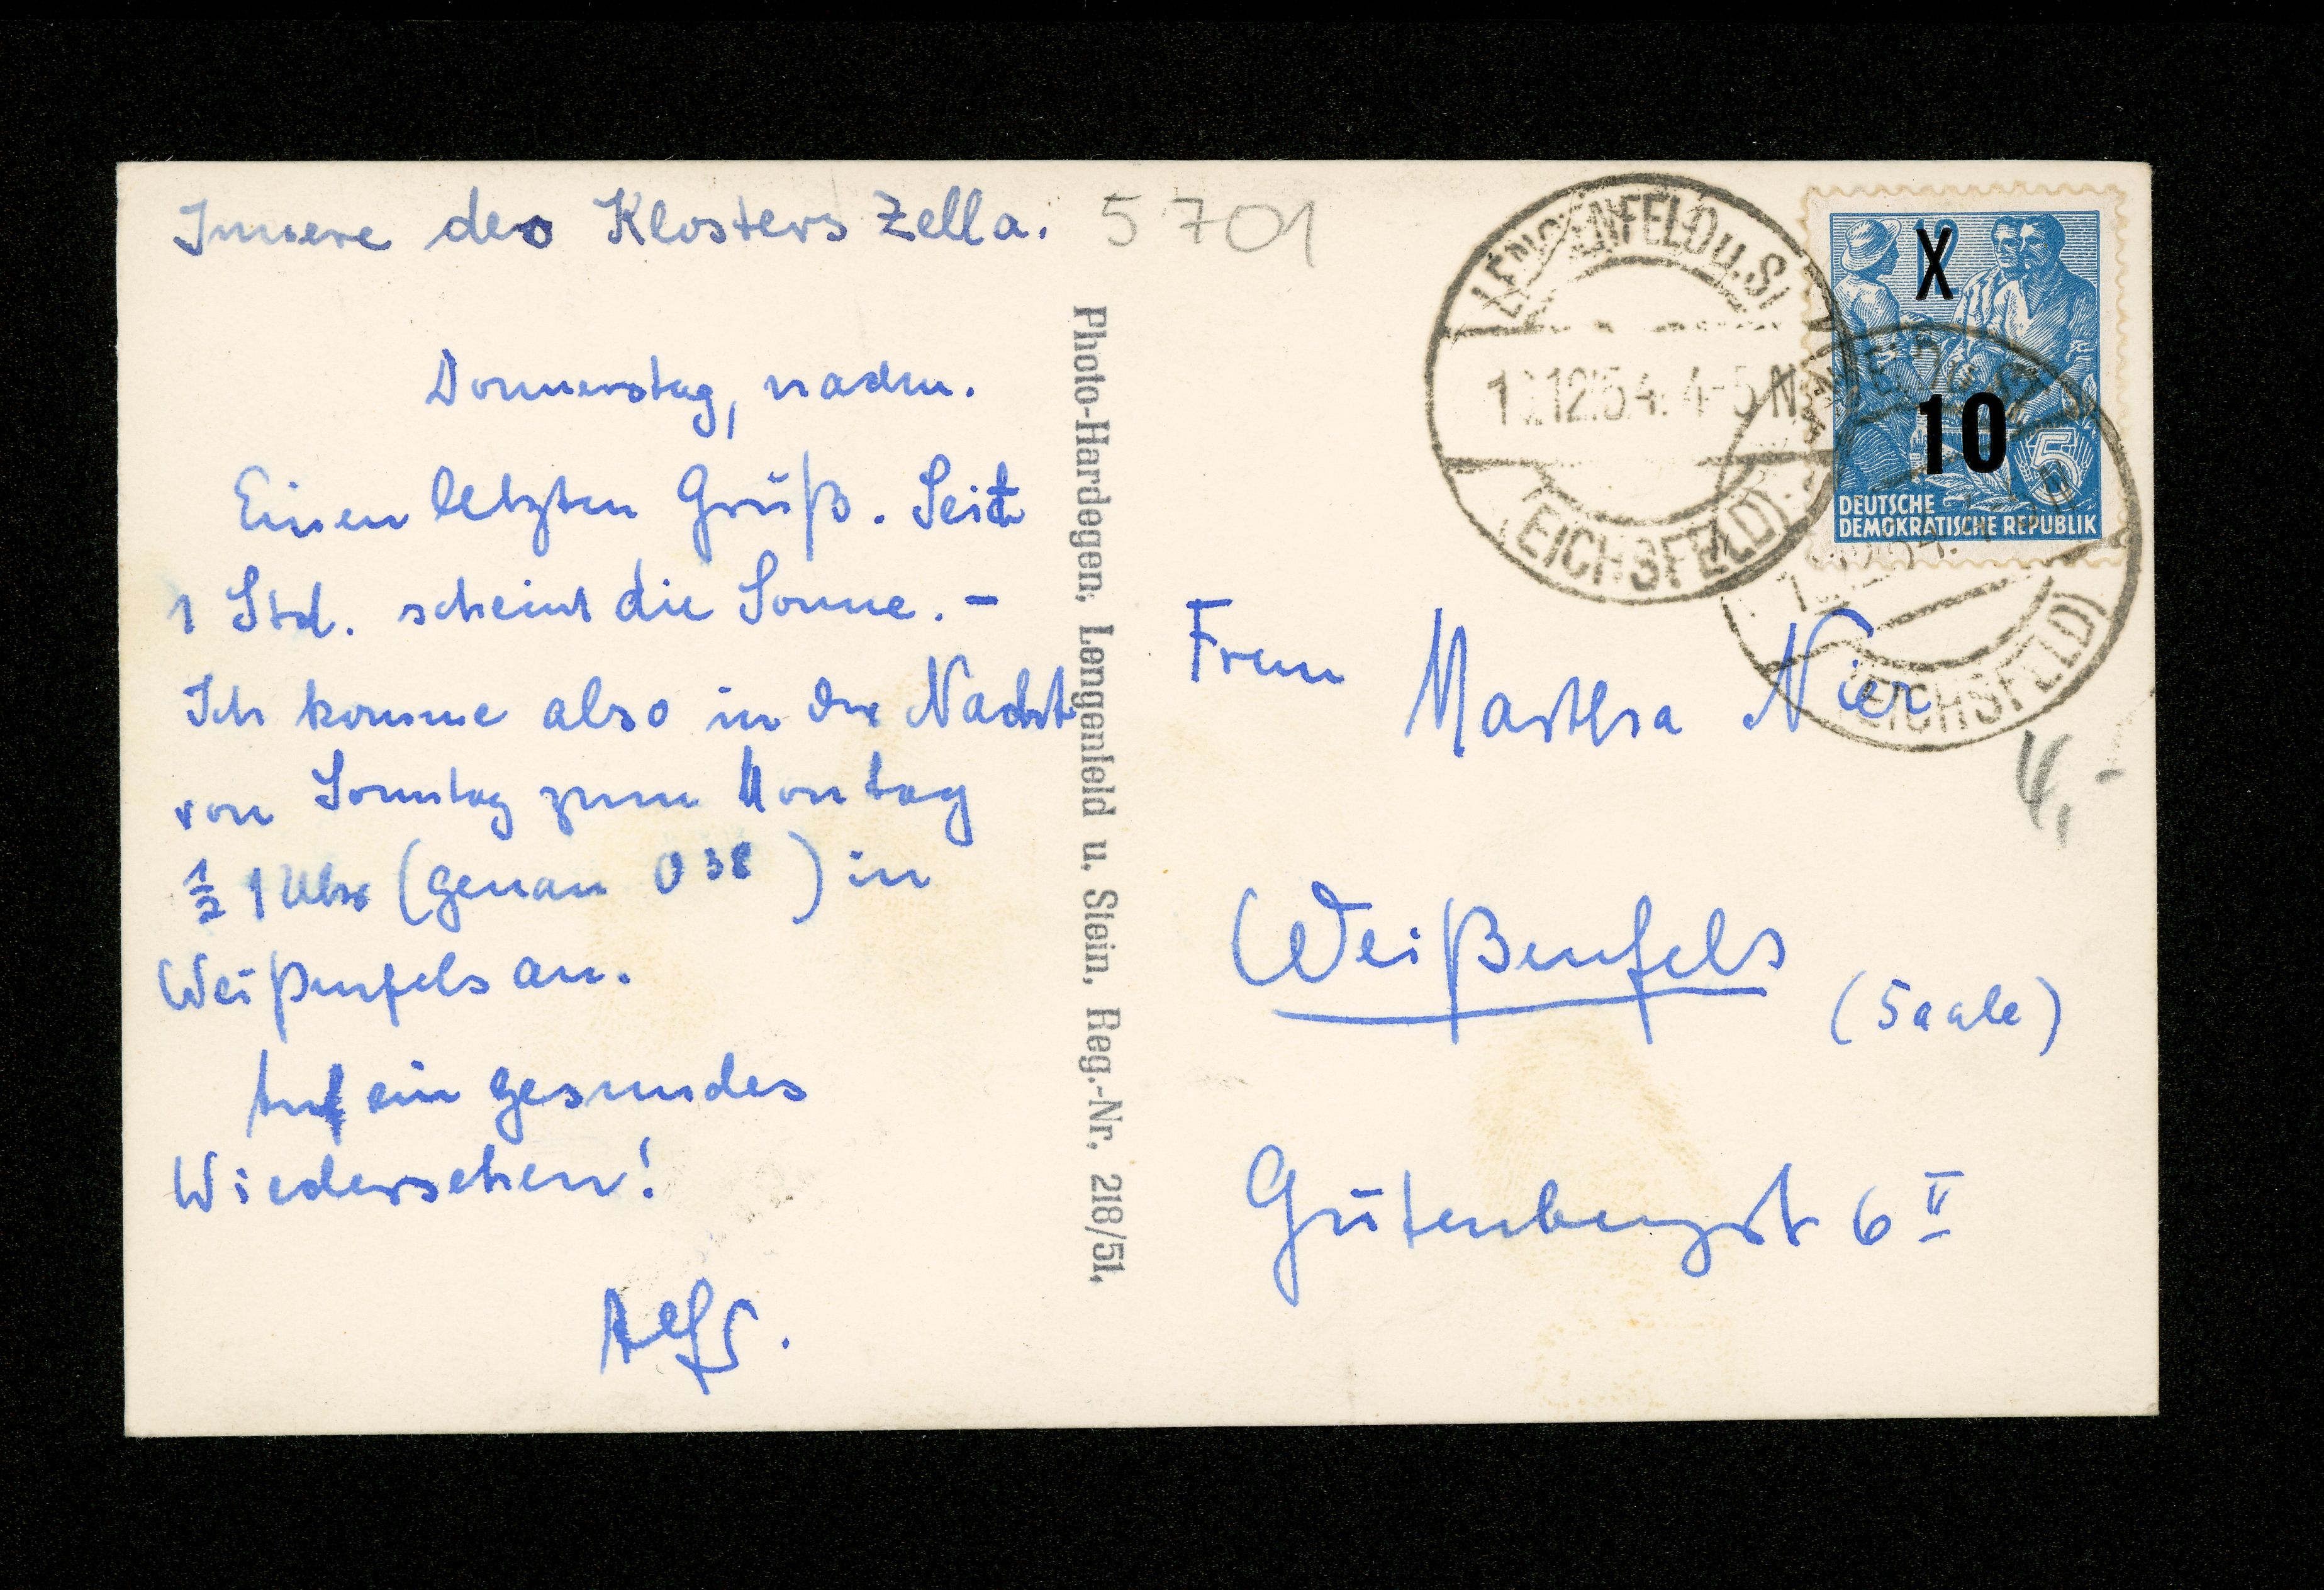 Innere des Klosters Zella.
5701
Donnerstag, nachm.
Einen letzten Gruß. Seit
1 Std. scheint die Sonne. –
Ich komme also in der Nacht
von Sonntag zum Montag
½ 1 Uhr (genau 0 38) in
Weißenfels an.
Auf ein gesundes
Wiedersehen!
Photo-Hardegen, Lengenfeld u. Stein, Reg.-Nr. 218/51,
LENGENFELD u. ST
12.54. 4-5 N
(EICHSFELD)
X
10
5
DEUTSCHE
DEMOKRATISCHE REPUBLIK
(EICHSFELD)
Frau
Martha Nier
4,-
Weißenfels
(Saale)
Gutenbergst 6 II